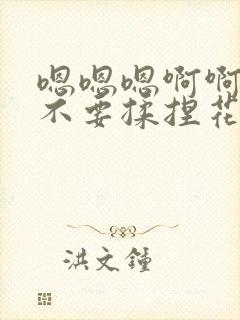 嗯嗯嗯啊啊
不要揉捏花
洪文鐘